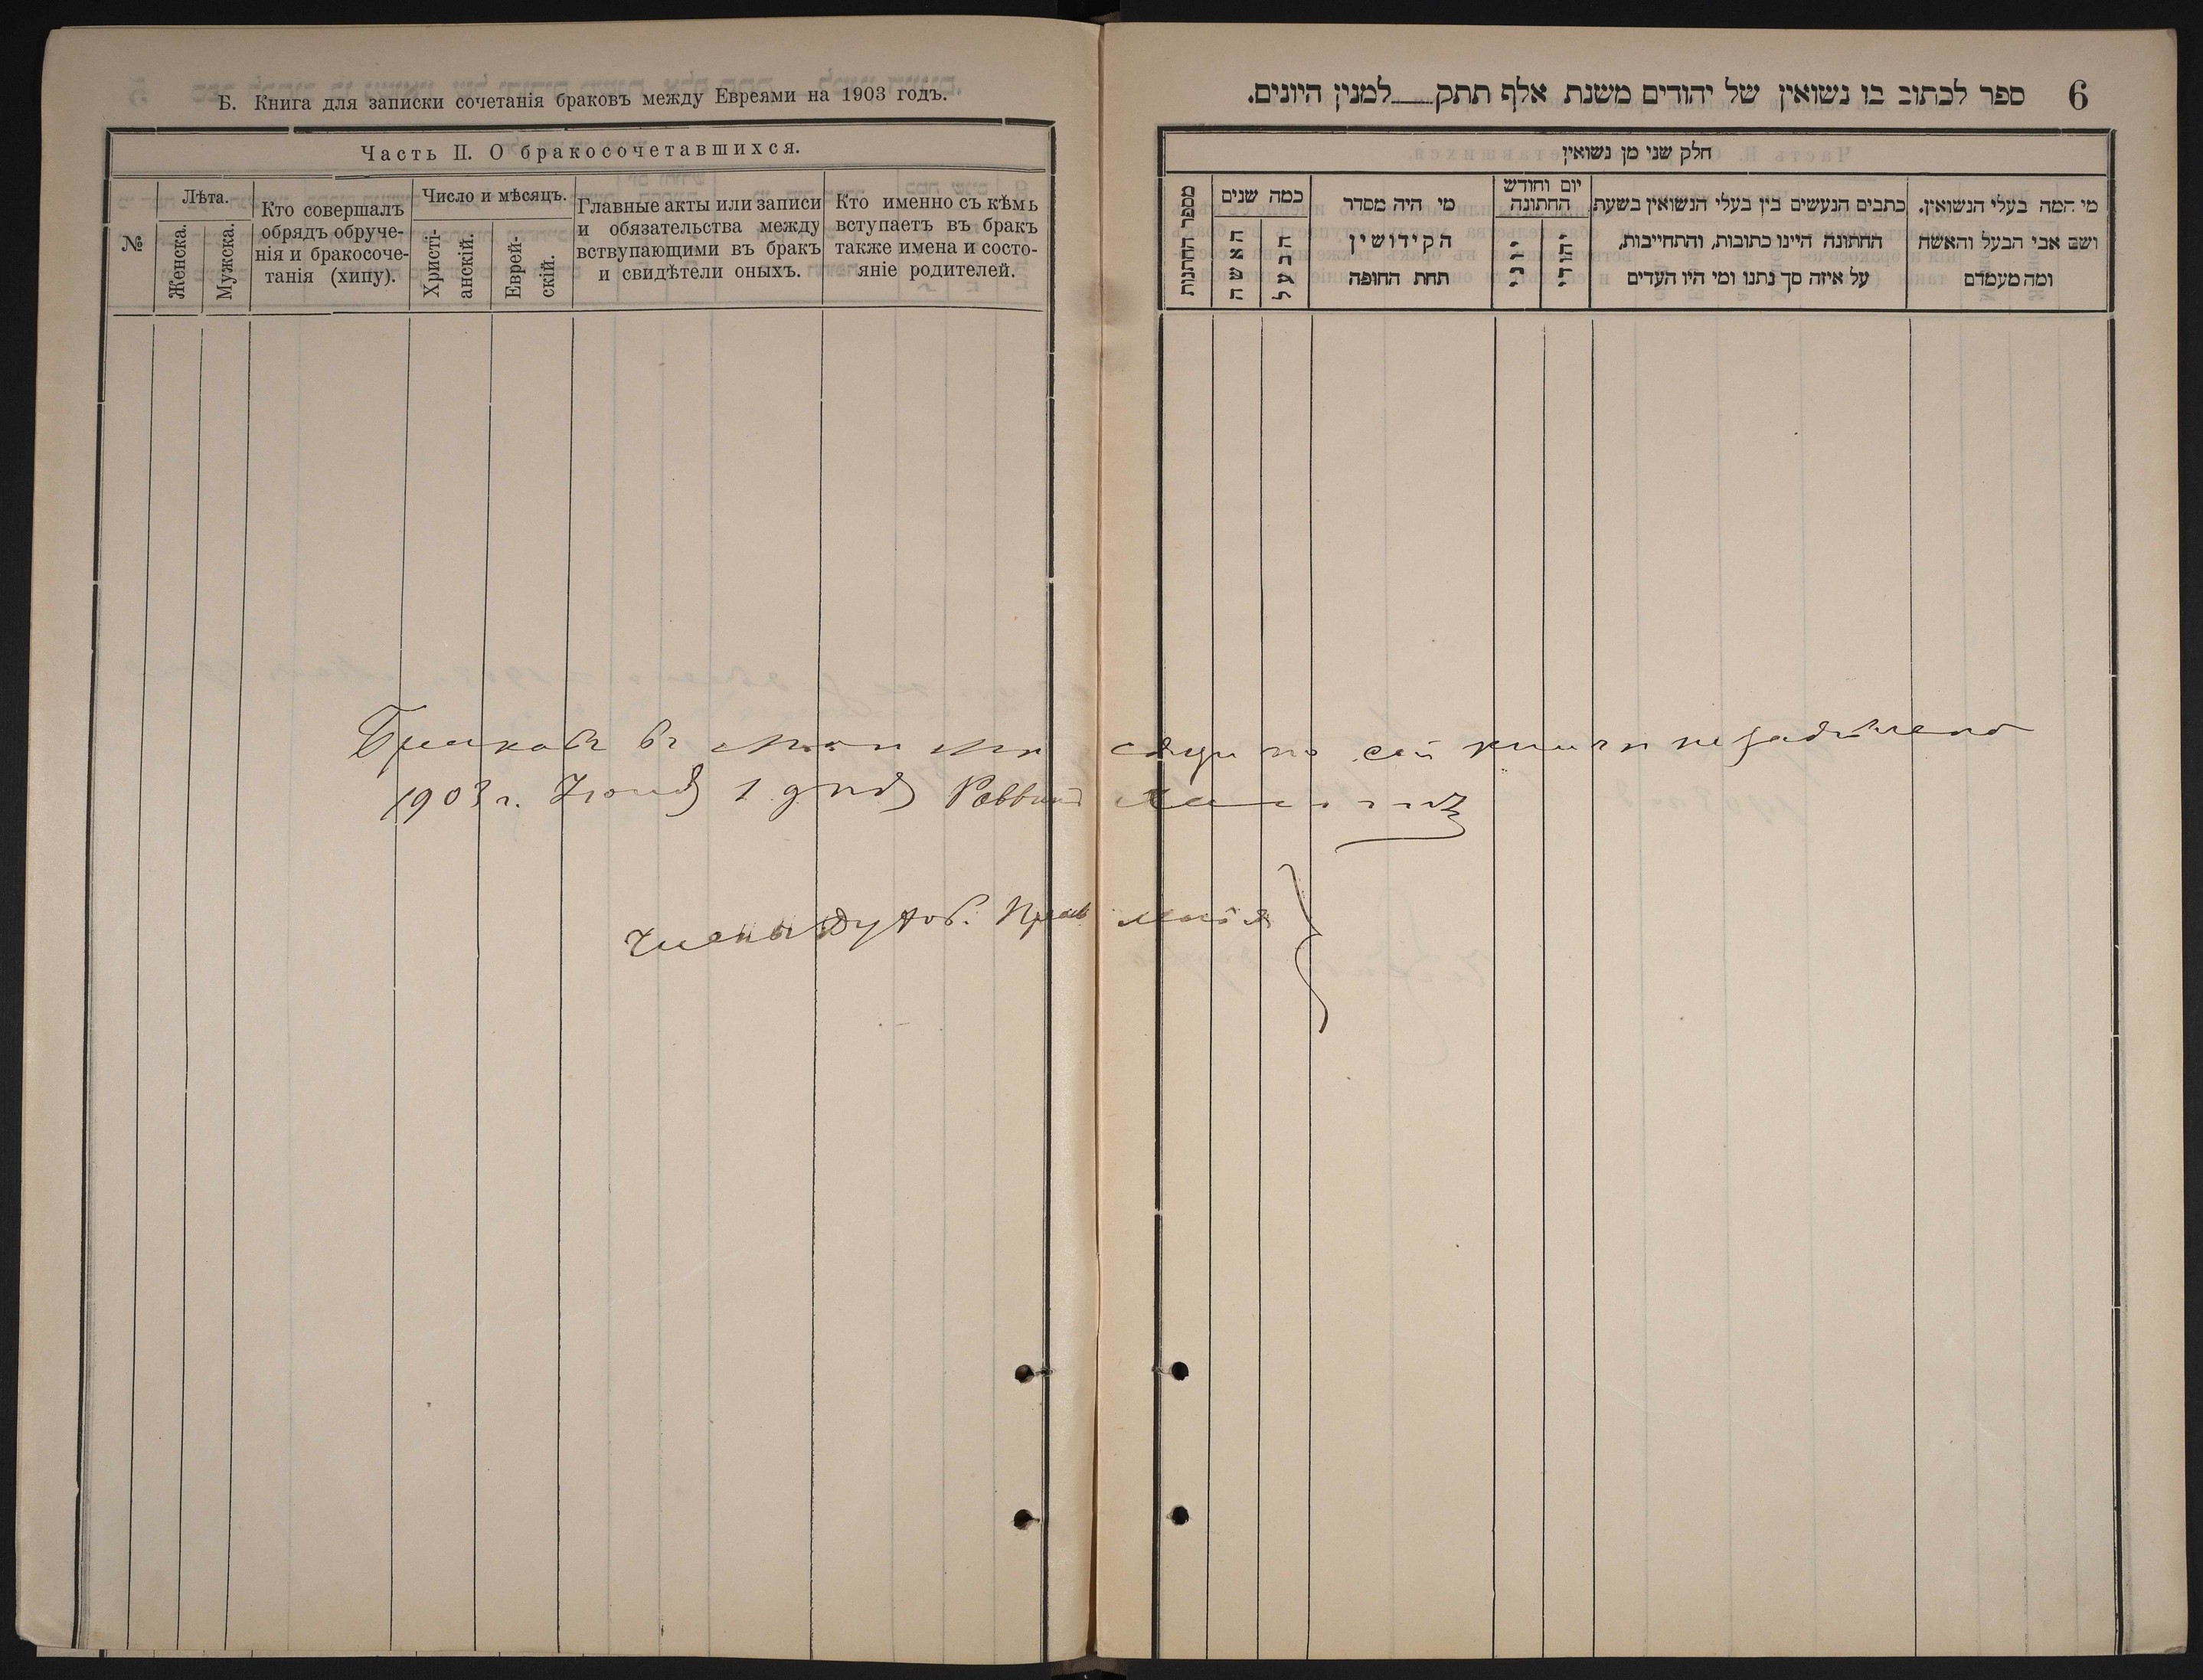 Б. Книга для записки сочетанія браковъ между Евреями на 1903 годъ.
Часть II. О бракосочетавшихся.
№
Лѣта.
Женска.
Мужска.
Кто совершалъ
обрядъ обруче-
нія и бракосоче-
танія (хипу).
Число и мѣсяцъ.
Христі-
анскій.
Еврей-
скій.
Главные акты или записи
и обязательства между
вствупающими въ бракъ
и свидѣтели оныхъ.
Кто именно съ кѣмъ
вступаетъ въ бракъ
также имена и состо-
яніе родителей.
6
ספר לכתוב בו נשואין של יהודים משנת אלף תתק___למנין היונים.
חלק שני מן נשואין
מספר החתונות
כמה שנים
האשה
הבעל
מי היה מסדר
הקידושין
תחת החופה
יום וחודש
החתונה
יוני
יהודי
כתבים הנעשים בין בעלי הנשואין בשעת
החתונה היינו כתובות, והתחייבות,
על איזה סך נתנו ומי היו העדים
מי המה בעלי הנשואין.
ושם אבי הבעל והאשה
ומה מעמדם
Браковъ въ маѣ мѣсяцѣ по сей книги
1903 г. Іюня 1 дня Раввинъ
Члены Духов. Правленія